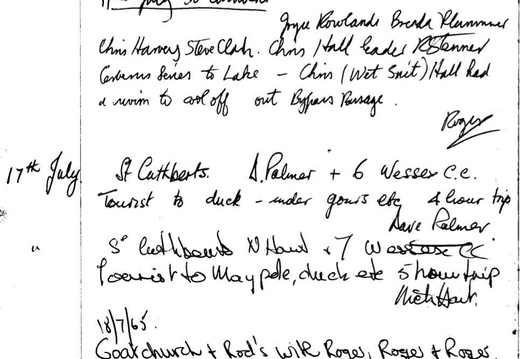 Joyce Rowlands Brenda Plummer
Chris Harvey Steve Clark. Chris Hall leader R Stenner
Cerberus Series to Lake - Chris (Wet Suit) Hall had
a swim to cool off out Bypass Passage.
Roger
17th July St Cuthberts. D. Palmer + 6 Wessex C.C.
Tourist to duck - under gours etc 4 hour trip
Dave Palmer
" St Cuthberts N Hart + 7 Wessex CC
Tourist to Maypole, duck etc 5 hour trip
Nick Hart.
18/7/65.
Goatchurch + Rod's with Roger, Roger + Roger.